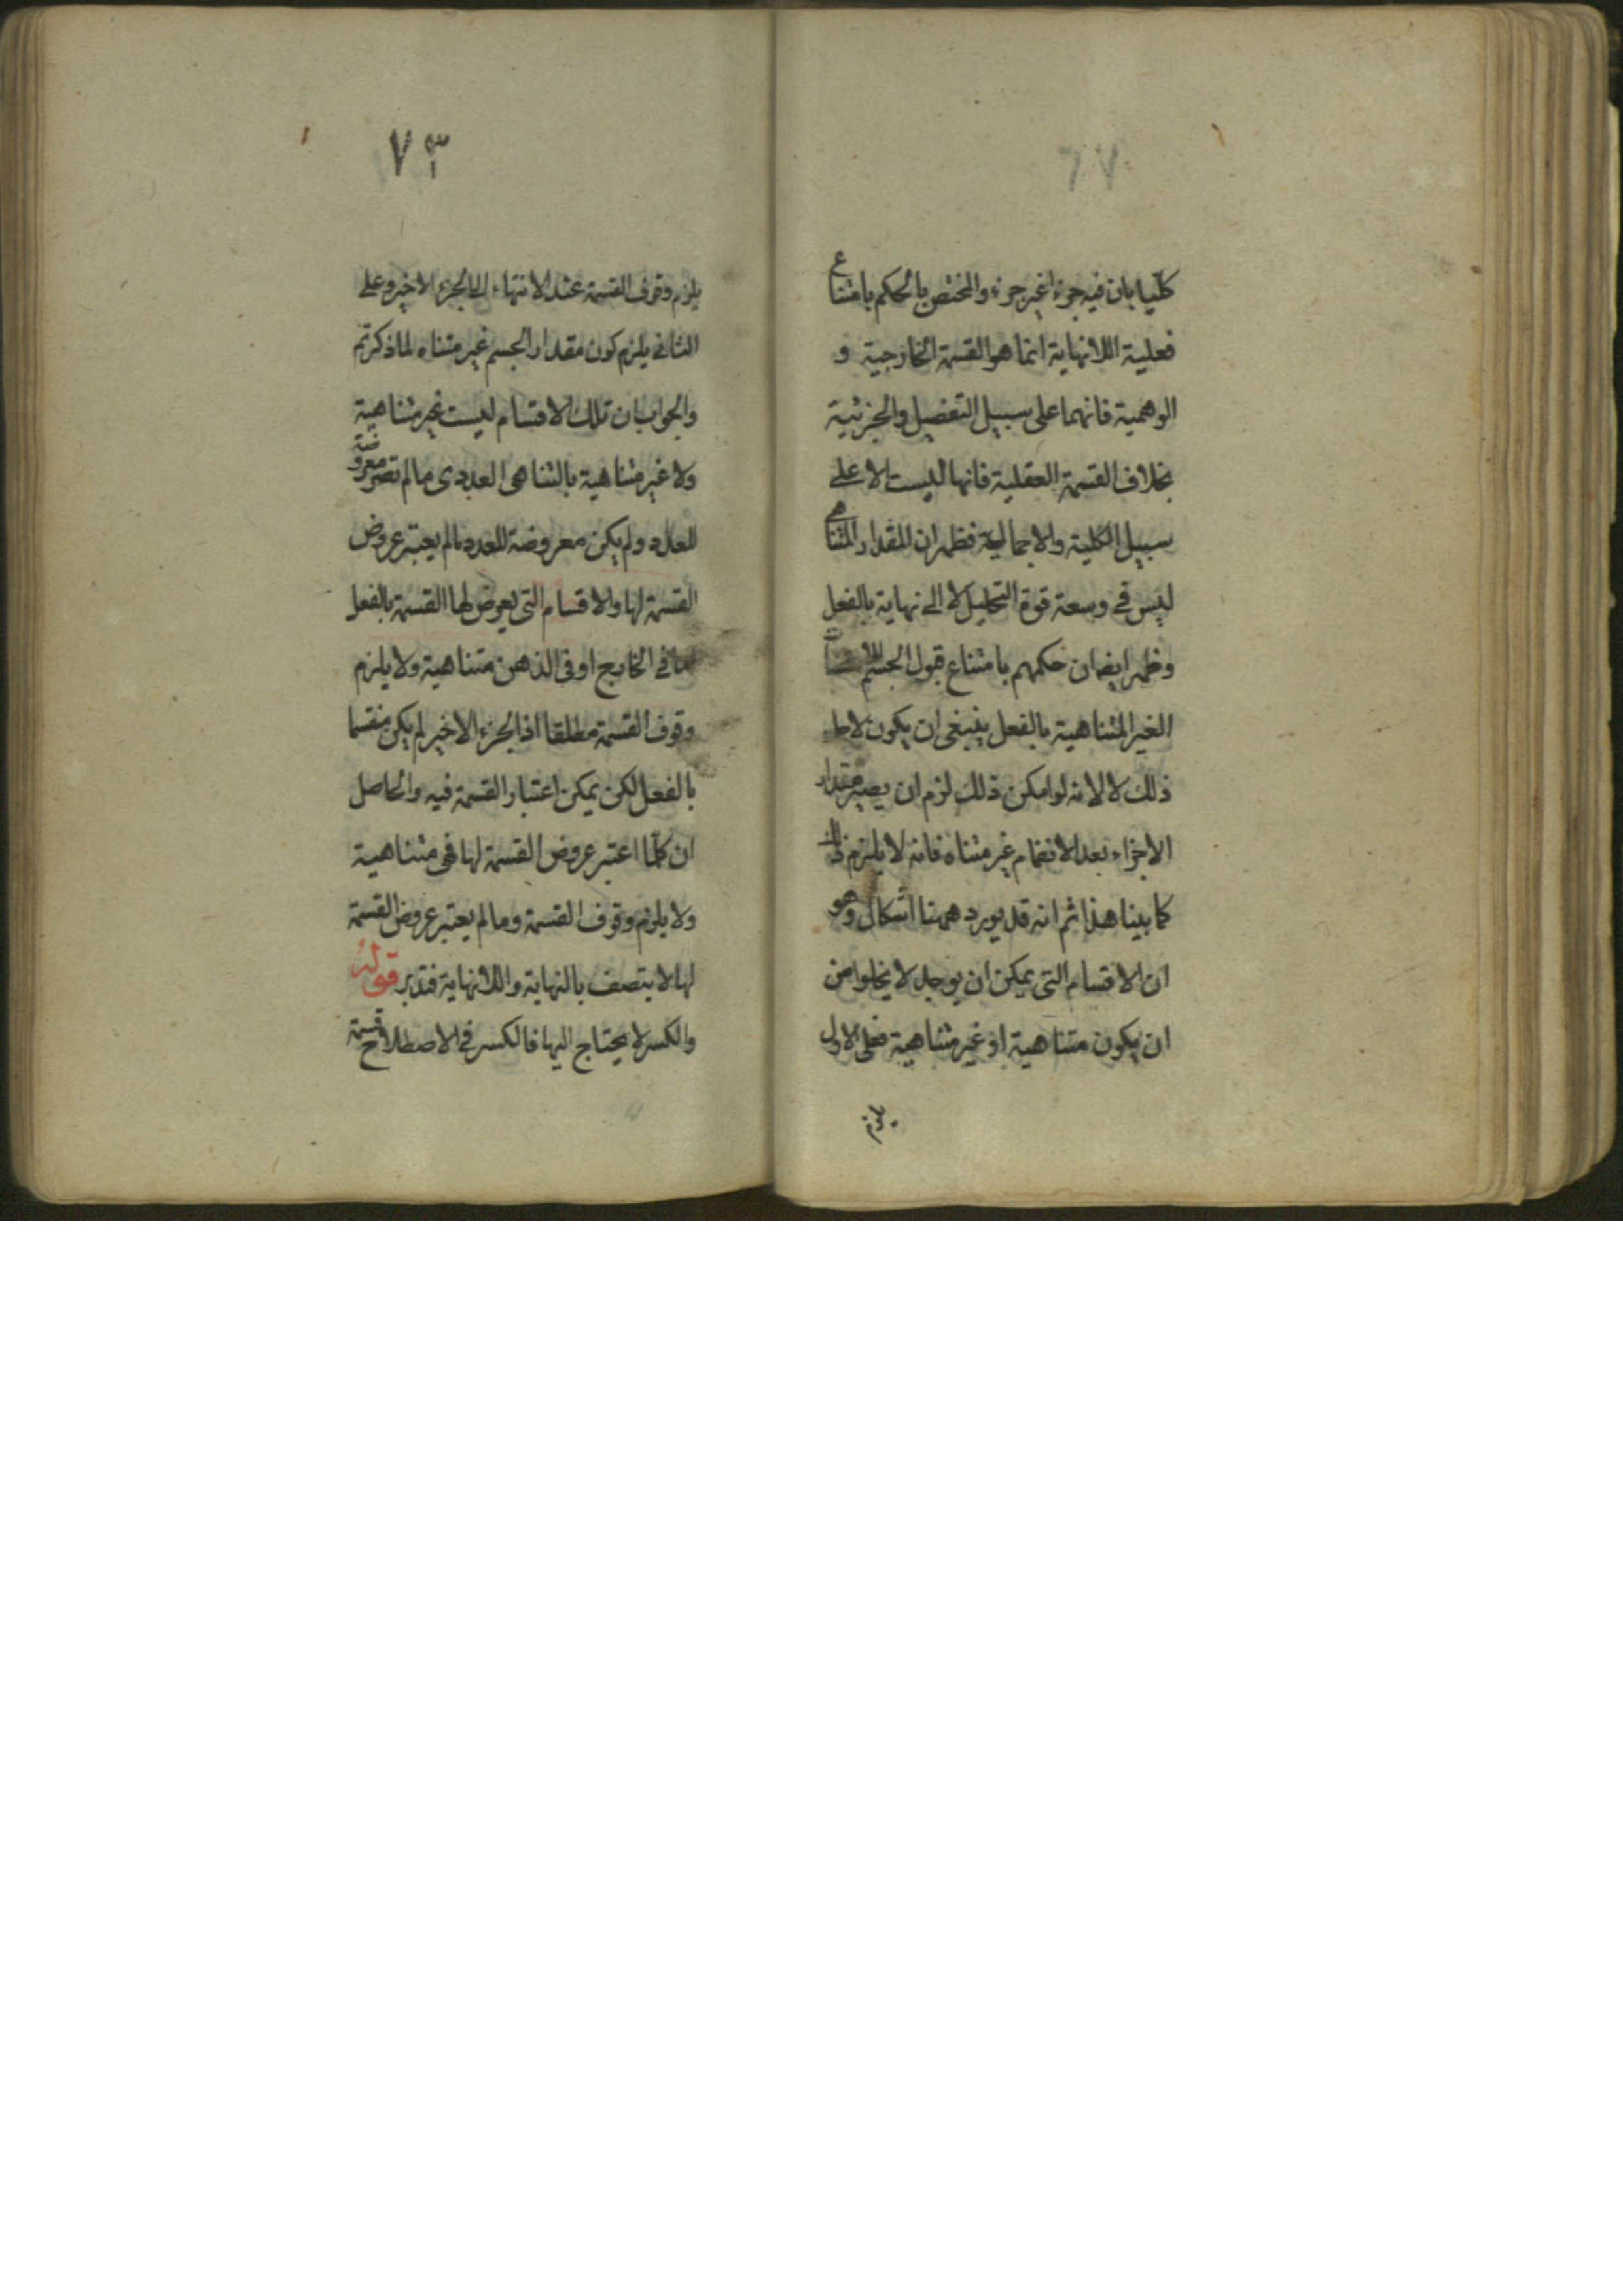 كليا بان فيه جزءا غير جزء والمختص بالحكم بامتناع
فعلية اللانهاية انما هو القسمة الخارجية و
الوهمية فانهما على سبيل التفصيل والجزئية
بخلاف القسمة العقلية فانها ليست الا على
سبيل الكلية والاجمالية فظهر ان المقدار المتناهى
ليس فى وسعة قوة التحليل لا الى نهاية بالفعل
وظهر ايضا ان حكمهم بامتناع قبول الجسم
الغير المتناهية بالفعل ينبغى ان يكون لا
ذلك لا لانه لو امكن ذلك لزم ان يصير مقدار
الاجزاء بعد الانضمام غير متناه فانه لا يلزم ذلك
كما بينا هذا ثم انه قد يورد ههنا اشكال وهو
ان الاقسام التى يمكن ان يوجد لا يخلوا من
ان يكون متناهية او غير متناهية فعلى الاول
يلزم
٧٣
يلزم وقوف القسمة عند الانتهاء الى الجزء الاخير وعلى
الثانى يلزم كون مقدار الجسم غير متناه لما ذكرتم
والجواب ان تلك الاقسام ليست غير متناهية
ولا غير متناهية بالتناهى العددى ما لم تصر معروضة
للعدد ولم يكن معروضة للعدد ما لم يعتبر عروض
القسمة لها والاقسام التى يعرض لها القسمة بالفعل
فى الخارج او فى الذهن متناهية ولا يلزم
وقوف القسمة مطلقا اذ الجزء الاخير لم يكن منقسما
بالفعل لكن يمكن اعتبار القسمة فيه والحاصل
ان كلما اعتبر عروض القسمة لها فهى متناهية
ولا يلزم وقوف القسمة وما لم يعتبر عروض القسمة
لها لا يتصف بالنهاية واللانهاية فتدبر قوله
والكسر لا يحتاج اليها فالكسر فى الاصطلاح قسمة